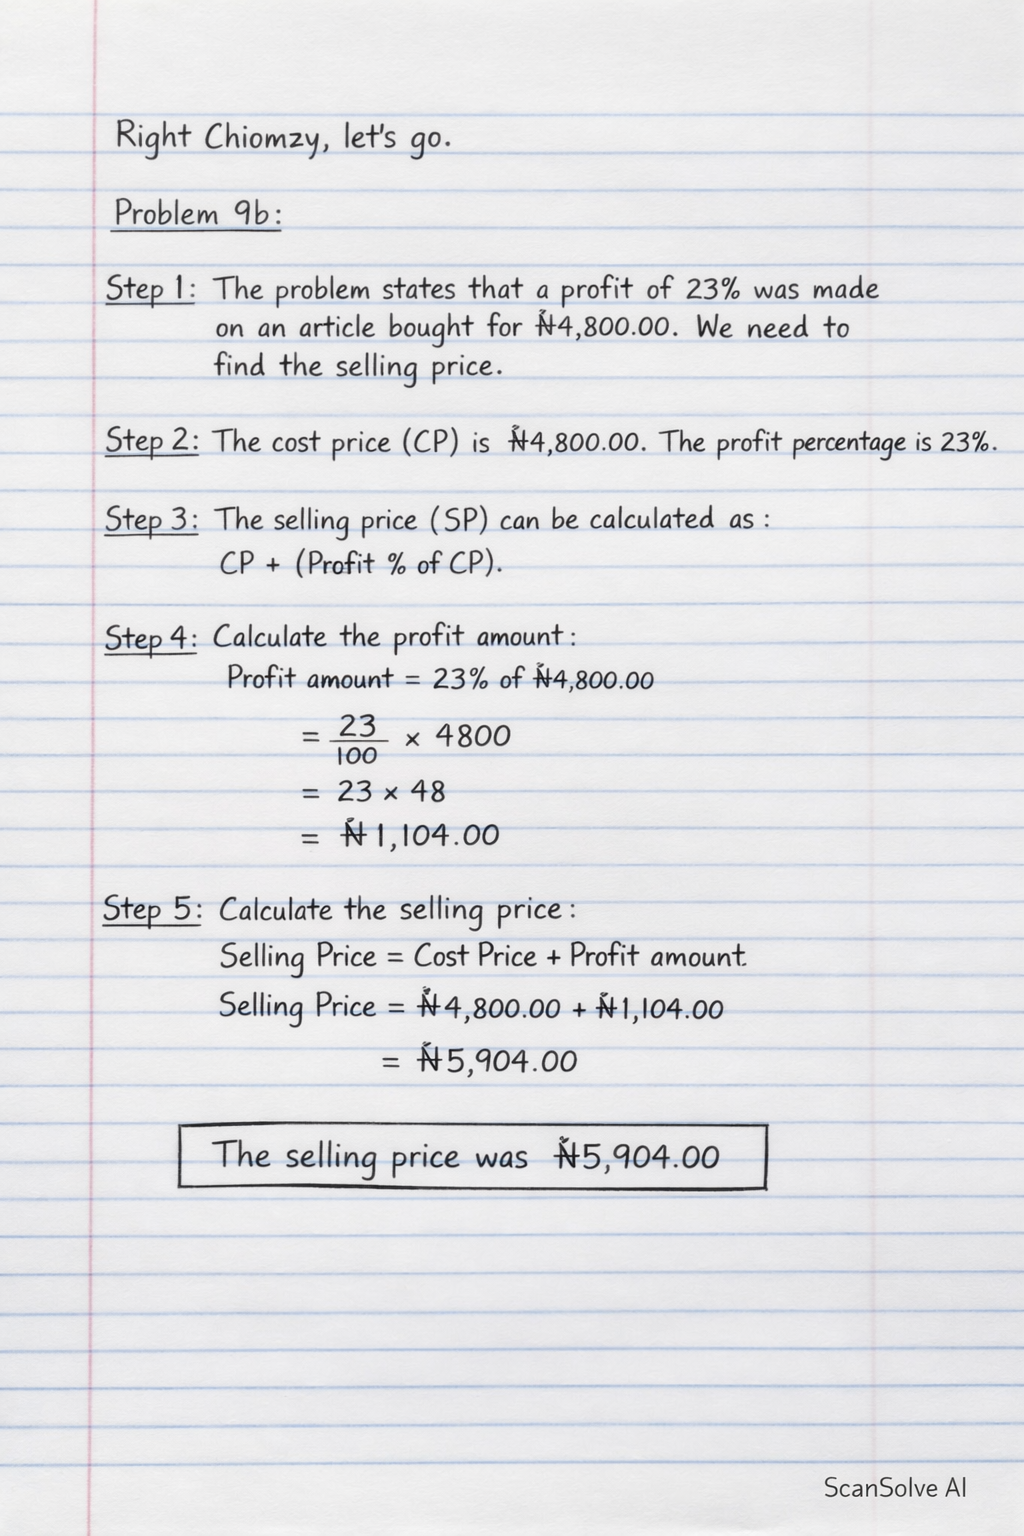 Right Chiomzy, let's go.
Problem 9b:
Step 1: The problem states that a profit of 23% was made
on an article bought for ₦4,800.00. We need to
find the selling price.
Step 2: The cost price (CP) is ₦4,800.00. The profit percentage is 23%.
Step 3: The selling price (SP) can be calculated as:
CP + (Profit % of CP).
Step 4: Calculate the profit amount:
Profit amount = 23% of ₦4,800.00
= 23/100 × 4800
= 23 × 48
= ₦1,104.00
Step 5: Calculate the selling price:
Selling Price = Cost Price + Profit amount.
Selling Price = ₦4,800.00 + ₦1,104.00
= ₦5,904.00
The selling price was ₦5,904.00
ScanSolve AI